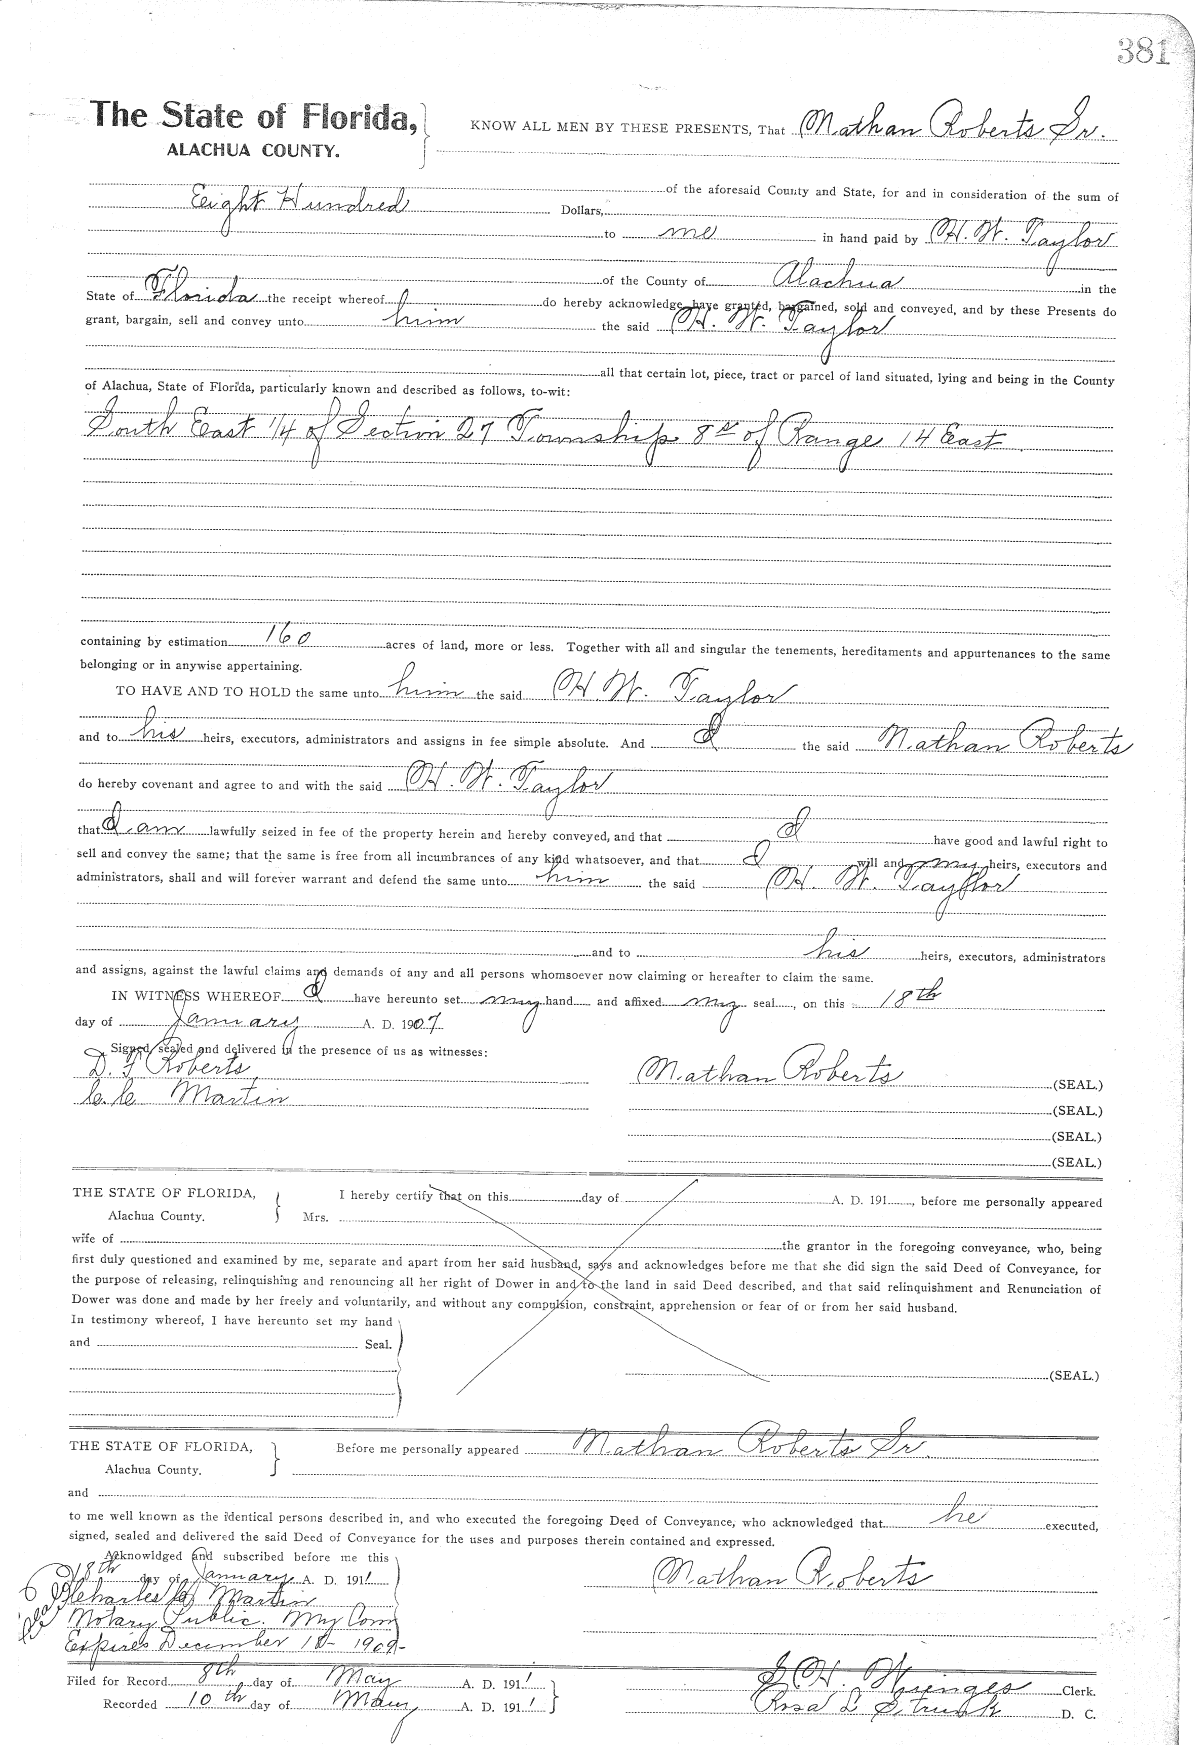 381
The State of Florida,
ALACHUA COUNTY.
KNOW ALL MEN BY THESE PRESENTS, That Nathan Roberts Sr.
of the aforesaid County and State, for and in consideration of the sum of
Eight Hundred Dollars,
to me in hand paid by H. W. Taylor
of the County of Alachua in the
State of Florida the receipt whereof I do hereby acknowledge, have granted, bargained, sold and conveyed, and by these Presents do
grant, bargain, sell and convey unto him the said H. W. Taylor
all that certain lot, piece, tract or parcel of land situated, lying and being in the County
of Alachua, State of Florida, particularly known and described as follows, to-wit:
South East 1/4 of Section 27 Township 8 s of Range 14 East
containing by estimation 160 acres of land, more or less. Together with all and singular the tenements, hereditaments and appurtenances to the same
belonging or in anywise appertaining.
TO HAVE AND TO HOLD the same unto him the said H. W. Taylor
and to his heirs, executors, administrators and assigns in fee simple absolute. And I the said Nathan Roberts
do hereby covenant and agree to and with the said H. W. Taylor
that I am lawfully seized in fee of the property herein and hereby conveyed, and that I have good and lawful right to
sell and convey the same; that the same is free from all incumbrances of any kind whatsoever, and that I will and my heirs, executors and
administrators, shall and will forever warrant and defend the same unto him the said H. W. Taylor
and to his heirs, executors, administrators
and assigns, against the lawful claims and demands of any and all persons whomsoever now claiming or hereafter to claim the same.
IN WITNESS WHEREOF I have hereunto set my hand and affixed my seal, on this 18th
day of January A. D. 1907
Signed, sealed and delivered in the presence of us as witnesses:
D. F Roberts
C. C. Martin
Nathan Roberts (SEAL.)
(SEAL.)
(SEAL.)
(SEAL.)
THE STATE OF FLORIDA,
Alachua County.
I hereby certify that on this day of A. D. 191, before me personally appeared
Mrs.
wife of the grantor in the foregoing conveyance, who, being
first duly questioned and examined by me, separate and apart from her said husband, says and acknowledges before me that she did sign the said Deed of Conveyance, for
the purpose of releasing, relinquishing and renouncing all her right of Dower in and to the land in said Deed described, and that said relinquishment and Renunciation of
Dower was done and made by her freely and voluntarily, and without any compulsion, constraint, apprehension or fear of or from her said husband.
In testimony whereof, I have hereunto set my hand
and Seal.
(SEAL.)
THE STATE OF FLORIDA,
Alachua County.
Before me personally appeared Nathan Roberts Sr.
and
to me well known as the identical persons described in, and who executed the foregoing Deed of Conveyance, who acknowledged that he executed,
signed, sealed and delivered the said Deed of Conveyance for the uses and purposes therein contained and expressed.
Acknowldged and subscribed before me this
18th day of January A. D. 1911
Charles C Martin
Notary Public. My Com
Expires December 10- 1909-
Nathan Roberts
Filed for Record 8th day of May A. D. 1911
Recorded 10th day of May A. D. 1911
S. H. Wienges Clerk.
Rosa L Strunk D. C.